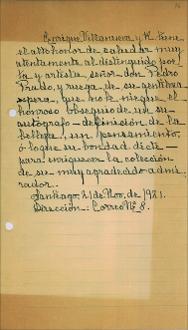 Enrique Villanueva y R. tiene
el alto honor de saludar muy
atentamente al distinguido poe-
ta y artista señor don Pedro
Prado, y ruega de su gentileza
espera, que no le niegue el
honroso obsequio de un su
autógrafo — definición de la
belleza, un pensamiento,
ó lo que su bondad dicte —
para enriquecer la colección
de su muy agradecido admi-
rador.
Santiago, 21 de Nov. de 1921.
Dirección: Correo Nº 8.